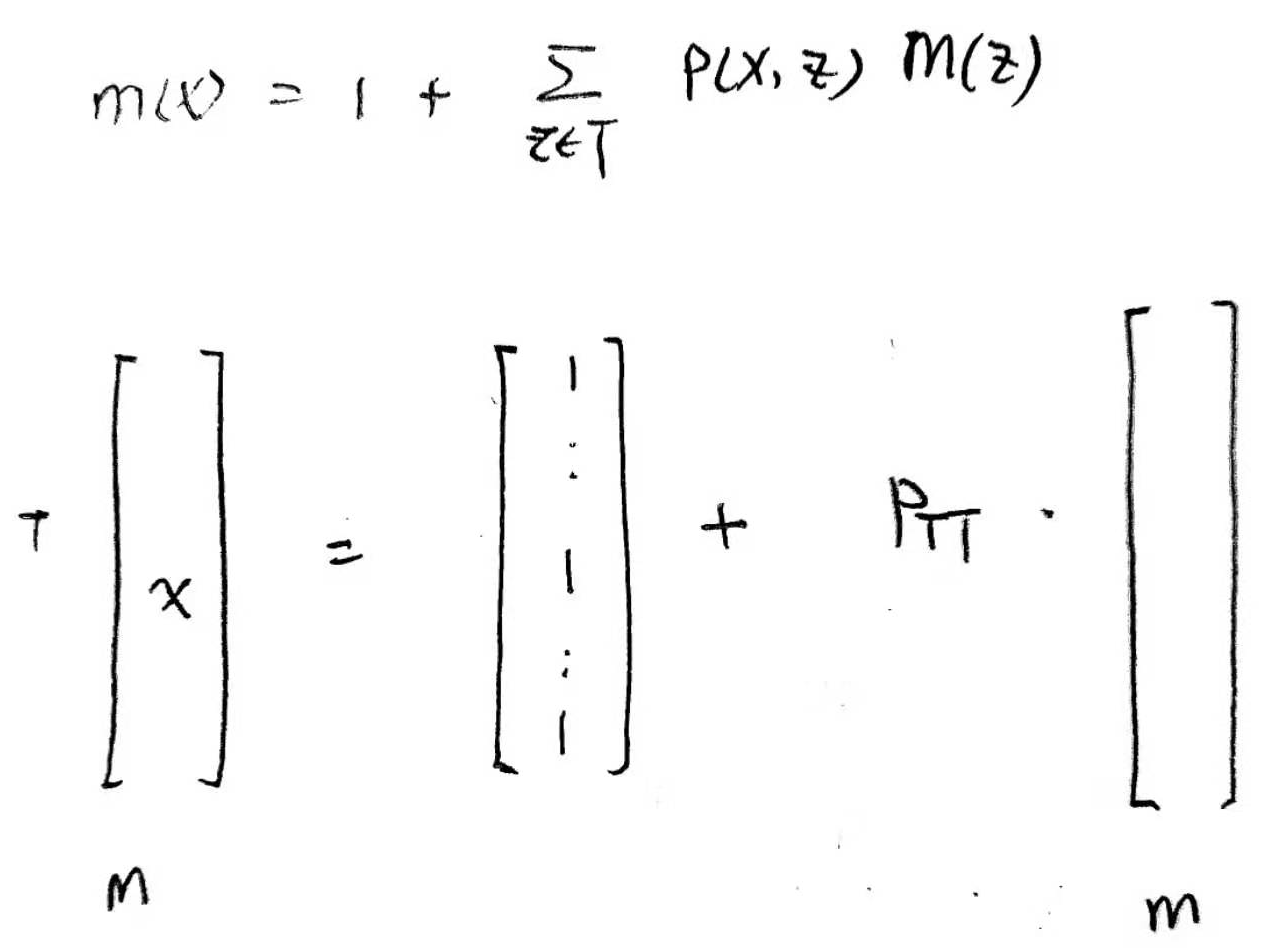 m(x) = 1 + Σ P(x, z) m(z)
z∈T
T [ x ] = [ 1 ⋮ 1 ⋮ 1 ] + P_TT · [ ]
m m